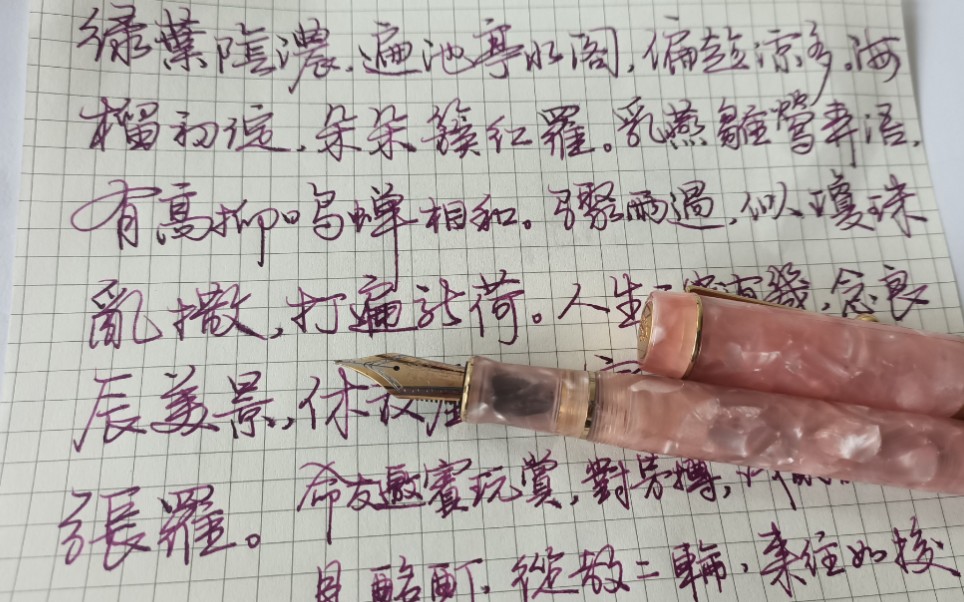 绿葉陰濃,遍池亭水阁,偏趁凉多。海
榴初淀,朵朵簇红羅。乳燕雛鶯弄语,
有高柳鸣蝉相和。骤雨過,似瓊珠
亂撒,打遍新荷。人生 幾,念良
辰美景,休放
張羅。
命友邀賓玩賞,對芳撙,
酩酊,從教二輪,来往如梭